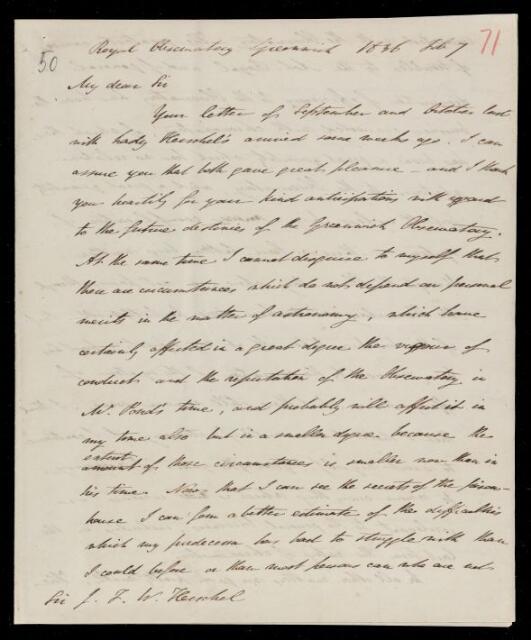 Royal Observatory Greenwich 1836 Feb 7
71
50
My dear Sir
Your letter of September and October last
with Lady Herschel's arrived some weeks ago. I can
assure you that both gave great pleasure – and I thank
you heartily for your kind anticipations with regard
to the future destinies of the Greenwich Observatory.
At the same time I cannot disguise to myself that
there are circumstances which do not depend on personal
merits in the matter of astronomy, which have
certainly affected in a great degree the vigour of
conduct and the reputation of the Observatory in
Mr. Pond's time, and probably will affect it in
my time also but in a smaller degree because the
extent
amount of those circumstances is smaller now than in
his time. Now that I can see the secrets of the prison-
house I can form a better estimate of the difficulties
which my predecessor has had to struggle with than
I could before or than most persons can who are not
Sir J. F. W. Herschel